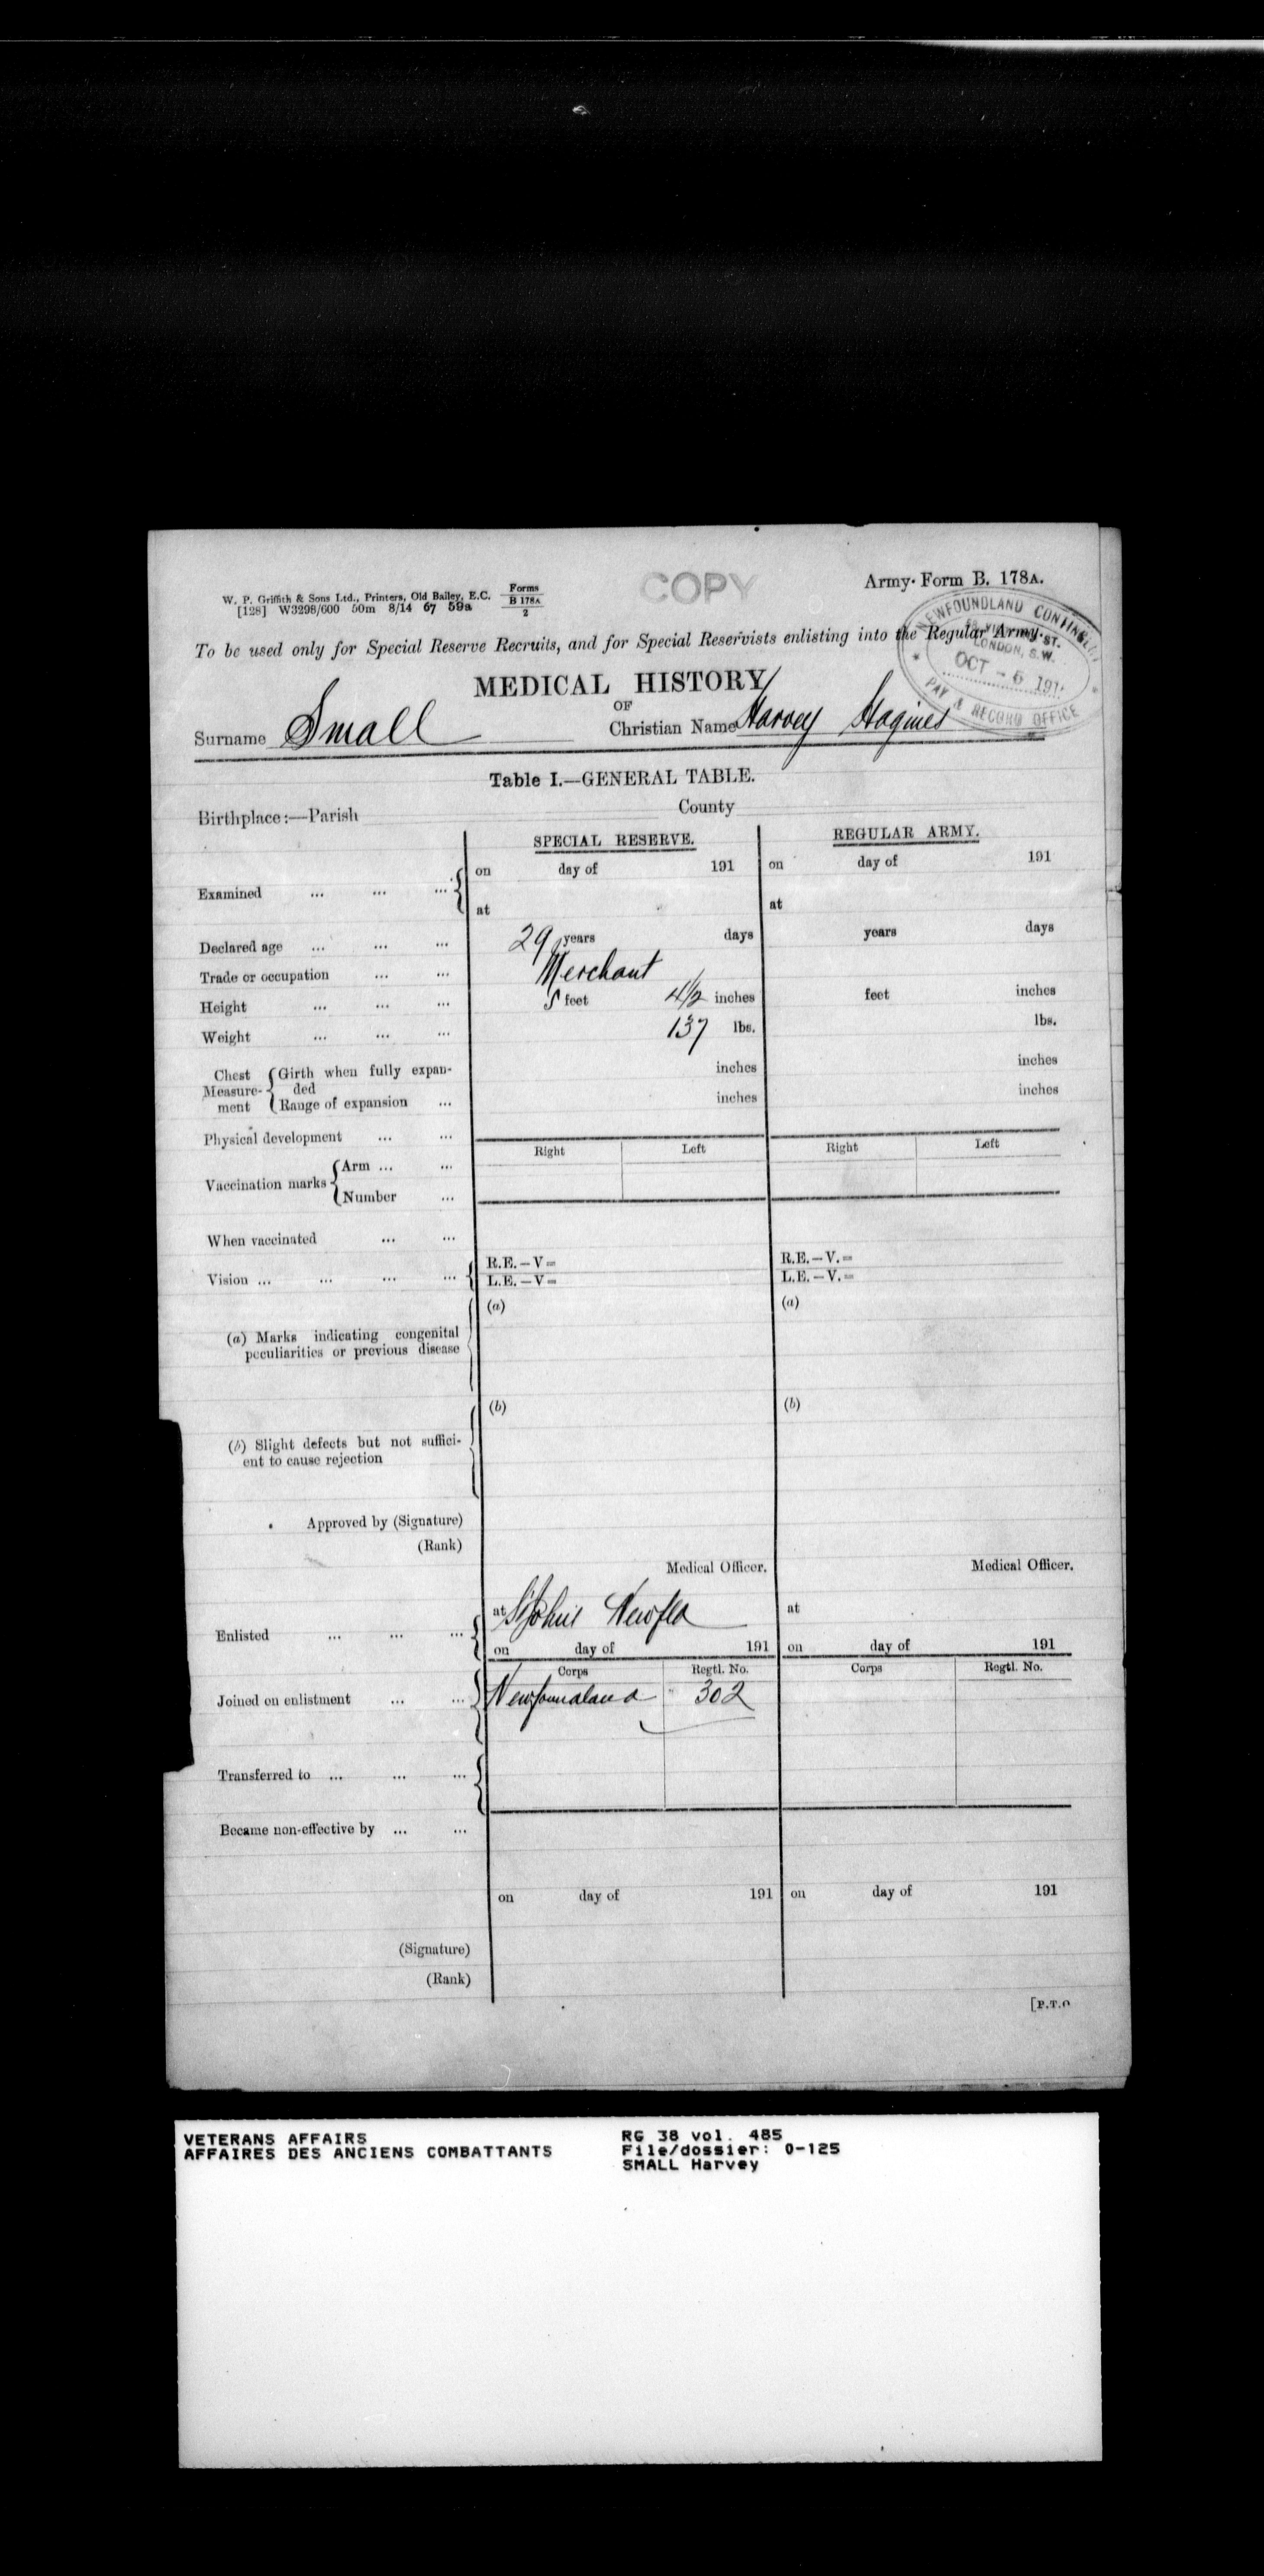 W. P. Griffith & Sons Ltd., Printers, Old Bailey, E.C. Forms B 178A 2
[128] W3298/600 50m 8/14 67 59a
COPY
Army Form B. 178A.
NEWFOUNDLAND CONTINGENT
ST.
LONDON, S.W.
OCT - 6 191
PAY & RECORD OFFICE
To be used only for Special Reserve Recruits, and for Special Reservists enlisting into the Regular Army.
MEDICAL HISTORY
OF
Surname Small Christian Name Harvey
Table I.—GENERAL TABLE.
Birthplace:—Parish County
SPECIAL RESERVE. REGULAR ARMY.
on day of 191 on day of 191
Examined ... ... ...
at at
Declared age ... ... ... 29 years days years days
Trade or occupation ... ... Merchant
Height ... ... ... 5 feet 4 1/2 inches feet inches
Weight ... ... ... 137 lbs. lbs.
Chest Measurement { Girth when fully expanded inches inches
Range of expansion ... inches inches
Physical development ... ...
Right Left Right Left
Vaccination marks { Arm ... ...
Number ...
When vaccinated ... ...
Vision ... ... ... ... R.E.—V= R.E.—V.=
L.E.—V= L.E.—V.=
(a) (a)
(a) Marks indicating congenital
peculiarities or previous disease
(b) (b)
(b) Slight defects but not suffici-
ent to cause rejection
Approved by (Signature)
(Rank)
Medical Officer. Medical Officer.
Enlisted ... ... ... at St Johns Newfld at
on day of 191 on day of 191
Corps Regtl. No. Corps Regtl. No.
Joined on enlistment ... ... Newfoundland 302
Transferred to ... ... ...
Became non-effective by ... ...
on day of 191 on day of 191
(Signature)
(Rank)
[P.T.O
VETERANS AFFAIRS RG 38 vol. 485
AFFAIRES DES ANCIENS COMBATTANTS File/dossier: 0-125
SMALL Harvey